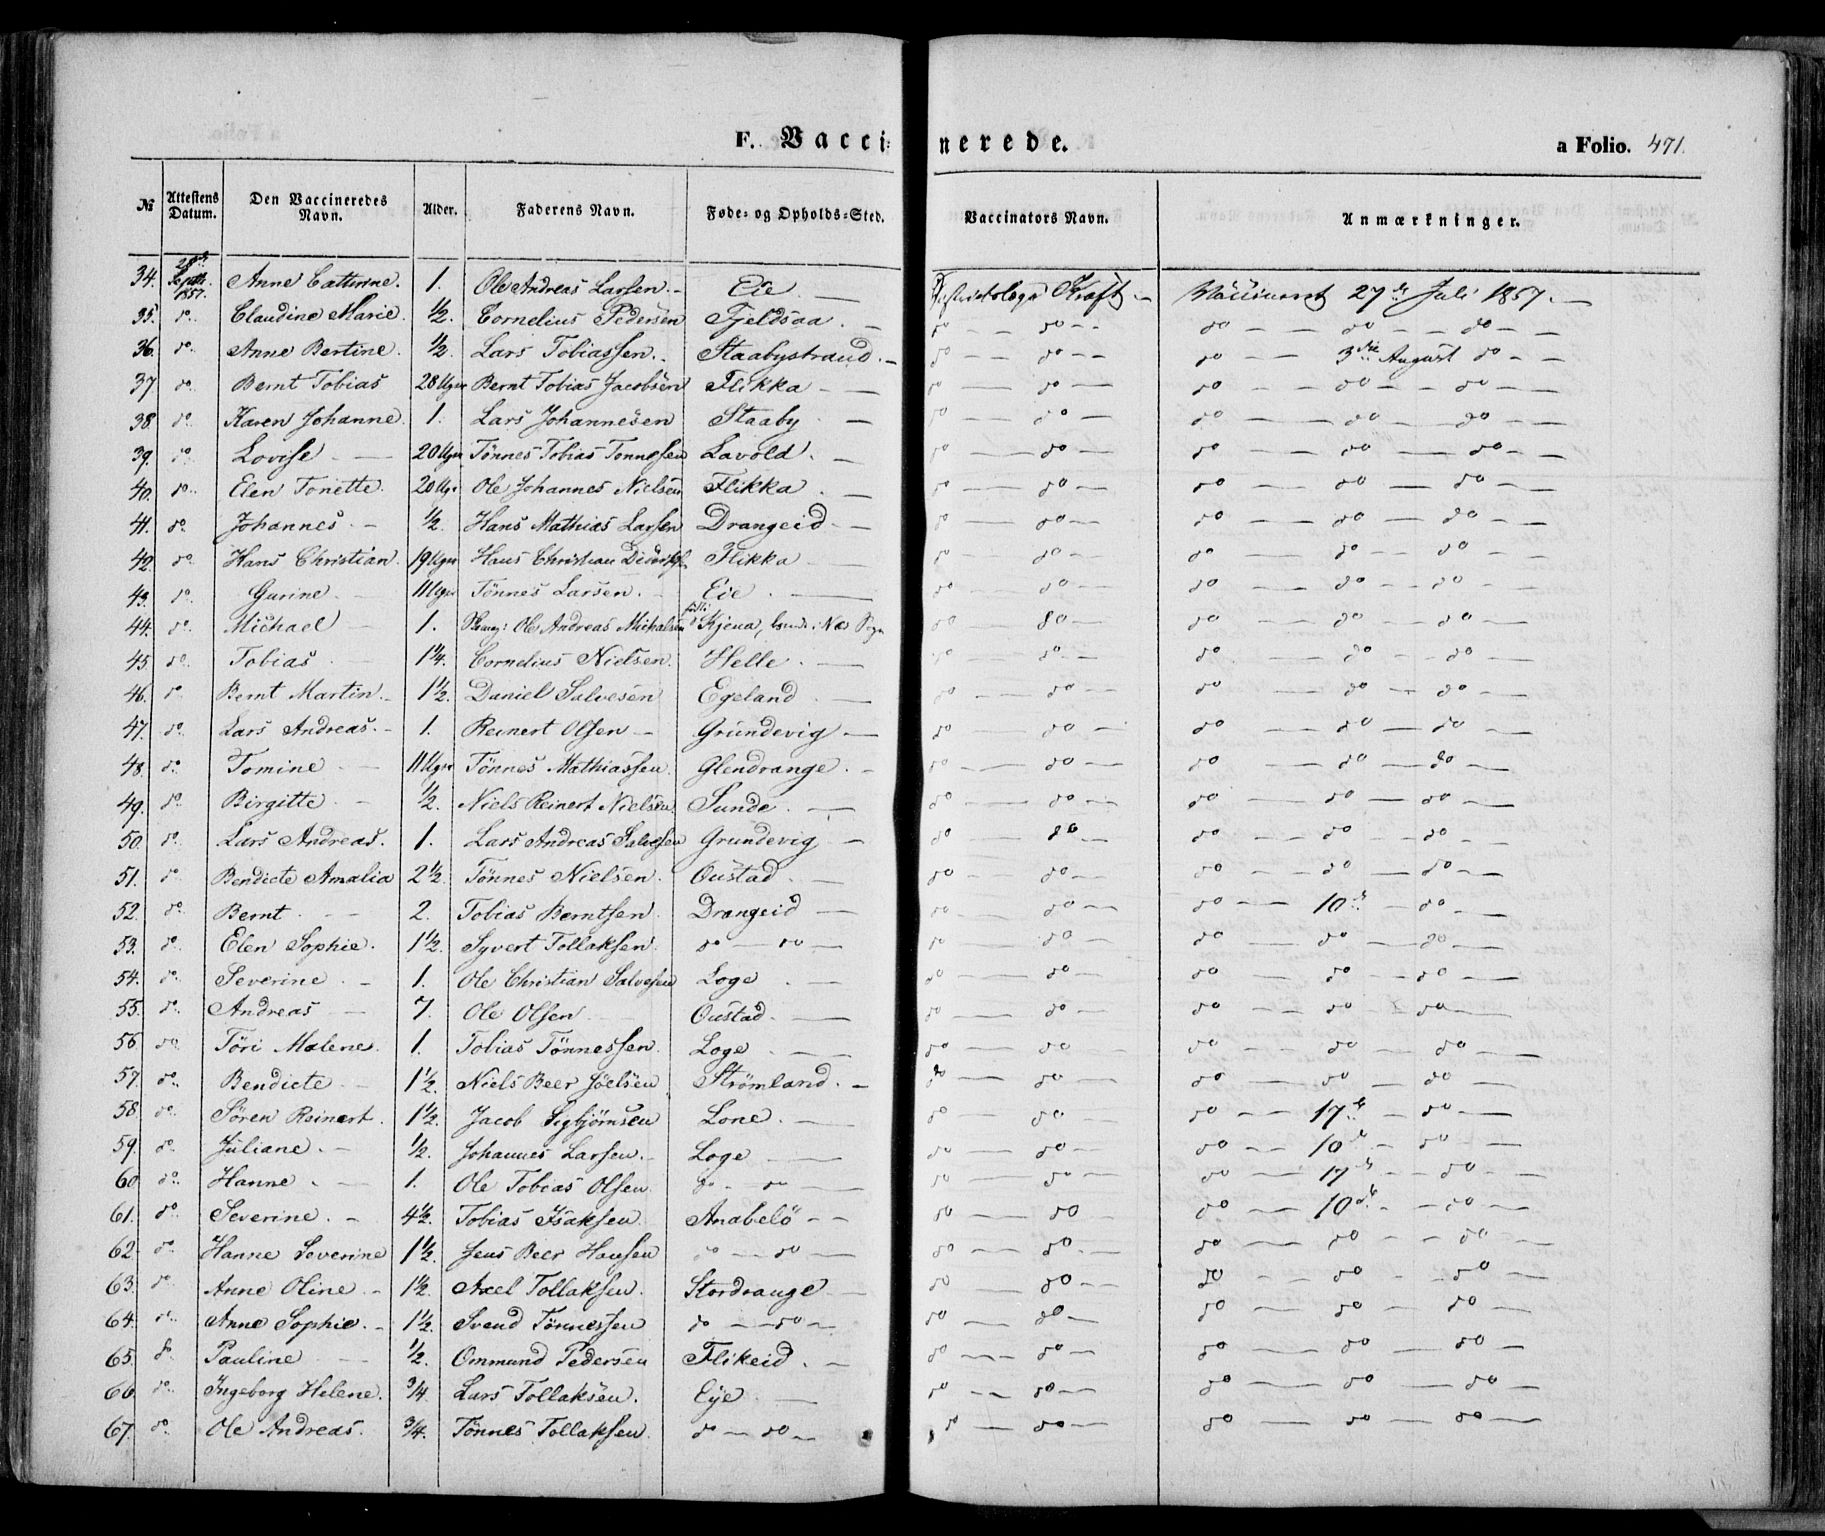 F. Vaccinerede.
a Folio. 471.
№ | Attestens Datum. | Den Vaccineredes Navn. | Alder. | Faderens Navn. | Føde- og Opholds-Sted. | Vaccinators Navn. | Anmærkninger.
34. | 28de Septb. 1857. | Anne Cathrine. | 1. | Ole Andreas Larsen. | Eie | Districtslæge Kraft. | Vaccineret 27de Juli 1857.
35. | do | Claudine Marie. | ½. | Cornelius Pedersen | Fjeldsaa. | do do | do do do
36. | do | Anne Bertine. | ½. | Lars Tobiassen. | Staabystrand. | do do | do 3die August do
37 | do | Bernt Tobias | 28 Uger | Bernt Tobias Jacobsen | Flikka | do do | do do do
38. | do | Karen Johanne. | 1. | Lars Johannesen | Staaby | do do | do do do
39. | do | Lovise | 20 Uger | Tönnes Tobias Tonnesen | Lavold. | do do | do do do
40. | do | Elen Tonette. | 20 Ugr | Ole Johannes Nielsen | Flikka. | do do | do do do
41. | do | Johannes | ½. | Hans Mathias Larsen | Drangeid | do do | do do do
42. | do | Hans Christian. | 19 Uger | Hans Christian | Flikka | do do | do do do
43. | do | Gurine | 11 Uger | Tönnes Larsen. | Eie. | do do | do do do
44. | do | Michael | 1. | Ole Andreas Michalsen | Kjena, | do do | do do do
45 | do | Tobias | 1¼. | Cornelius Nielsen. | Helle. | do do | do do do
46. | do | Bernt Martin. | 1½. | Daniel Salvesen | Egeland | do do | do do do
47. | do | Lars Andreas. | 1. | Reinert Olsen | Grundevig | do do | do do do
48. | do | Tomine | 11 Uger | Tönnes Mathiassen. | Glendrange. | do do | do do do
49. | do | Birgitte. | ½. | Niels Reinert Nielsen | Sunde. | do do | do do do
50. | do | Lars Andreas. | 1. | Lars Andreas Salvesen | Grundevig | do do | do do do
51. | do | Bendicte Amalia | 2½. | Tönnes Nielsen. | Oustad. | do do | do do do
52. | do | Bernt. | 2. | Tobias Berntsen. | Drangeid | do do | do 10de do
53. | do | Elen Sophie. | 1½. | Syvert Tollaksen. | do do | do do | do do do
54. | do | Severine. | 1. | Ole Christian Salvesen | Loge. | do do | do do do
55. | do | Andreas | 7. | Ole Olsen | Oustad. | do do | do do do
56 | do | Töri Malene. | 1. | Tobias Tönnessen. | Loge. | do do | do do do
57. | do | Bendicte | 1½. | Niels Beer Jöelsen | Strömland. | do do | do do do
58. | do | Sören Reinert. | 1½. | Jacob Sigbjörnsen | Lone. | do do | do 17de do
59. | do | Juliane. | ½. | Johannes Larsen. | Loge | do do | do 10de do
60 | do | Hanne. | 1. | Ole Tobias Olsen. | do do | do do | do 17de do
61. | do | Severine. | 4½. | Tobias Isaksen. | Anabelö | do do | do 10de do
62 | do | Hanne Severine | 1½. | Jens Beer Hansen | do do | do do | do do do
63. | do | Anne Oline. | 1½. | Axel Tollaksen. | Stordrange | do do | do do do
64. | do | Anne Sophie. | 1½. | Svend Tönnessen | do do | do do | do do do
65. | do | Pauline | ½. | Ommund Pedersen | Flikeid. | do do | do do do
66. | do | Ingeborg Helene. | ¾. | Lars Tollaksen. | Eye | do do | do do do
67. | do | Ole Andreas. | ¾. | Tönnes Tollaksen. | do do | do do | do do do